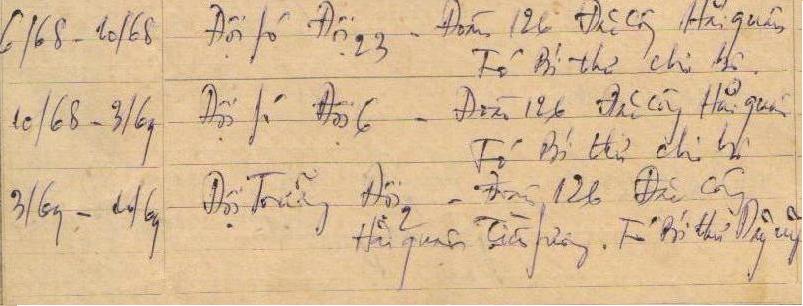 6/68 - 10/68 Đội fó Đội 23 - Đoàn 126 Đặc Công Hải quân
Fó Bí thư chi bộ.
10/68 - 3/69 Đội fó Đội 6 - Đoàn 126 Đặc Công Hải quân
Fó Bí thư chi bộ
3/69 - 10/69 Đội Trưởng Đội 2 - Đoàn 126 Đặc Công
Hải quân Tiền fương. Fó Bí thư Đảng uỷ